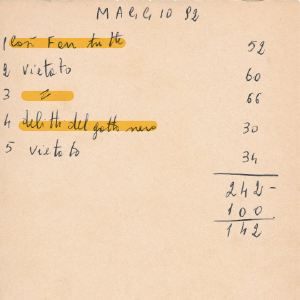 MAGGIO 92
1 Così Fan tutte 52
2 Vietato 60
3 = 66
4 delitti del gatto nero 30
5 Vietato 34
242-
100
142